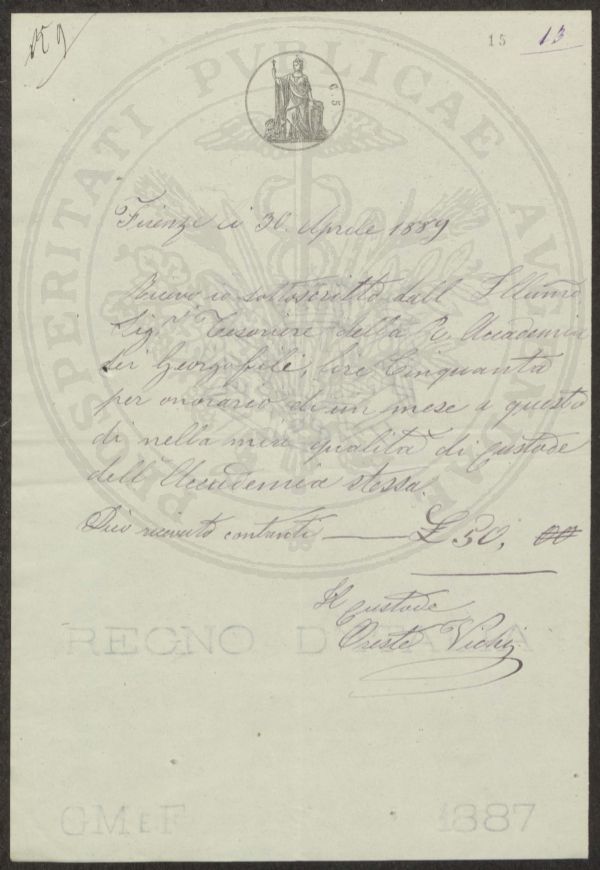 159
15 13
C. 5
PROSPERITATI PUBLICAE AUGENDAE
Firenze li 30. Aprile 1889
Ricevo io sottoscritto dall' Illumo
Sigr. Tesoriere della R. Accademia
dei Georgofili, lire Cinquanta
per onorario di un mese a questo
dì nella mia qualità di Custode
dell'Accademia stessa.
Dico ricevuto contanti — £ 50, 00
Il Custode
Oreste Vichi
REGNO D'ITALIA
GM E F 1887